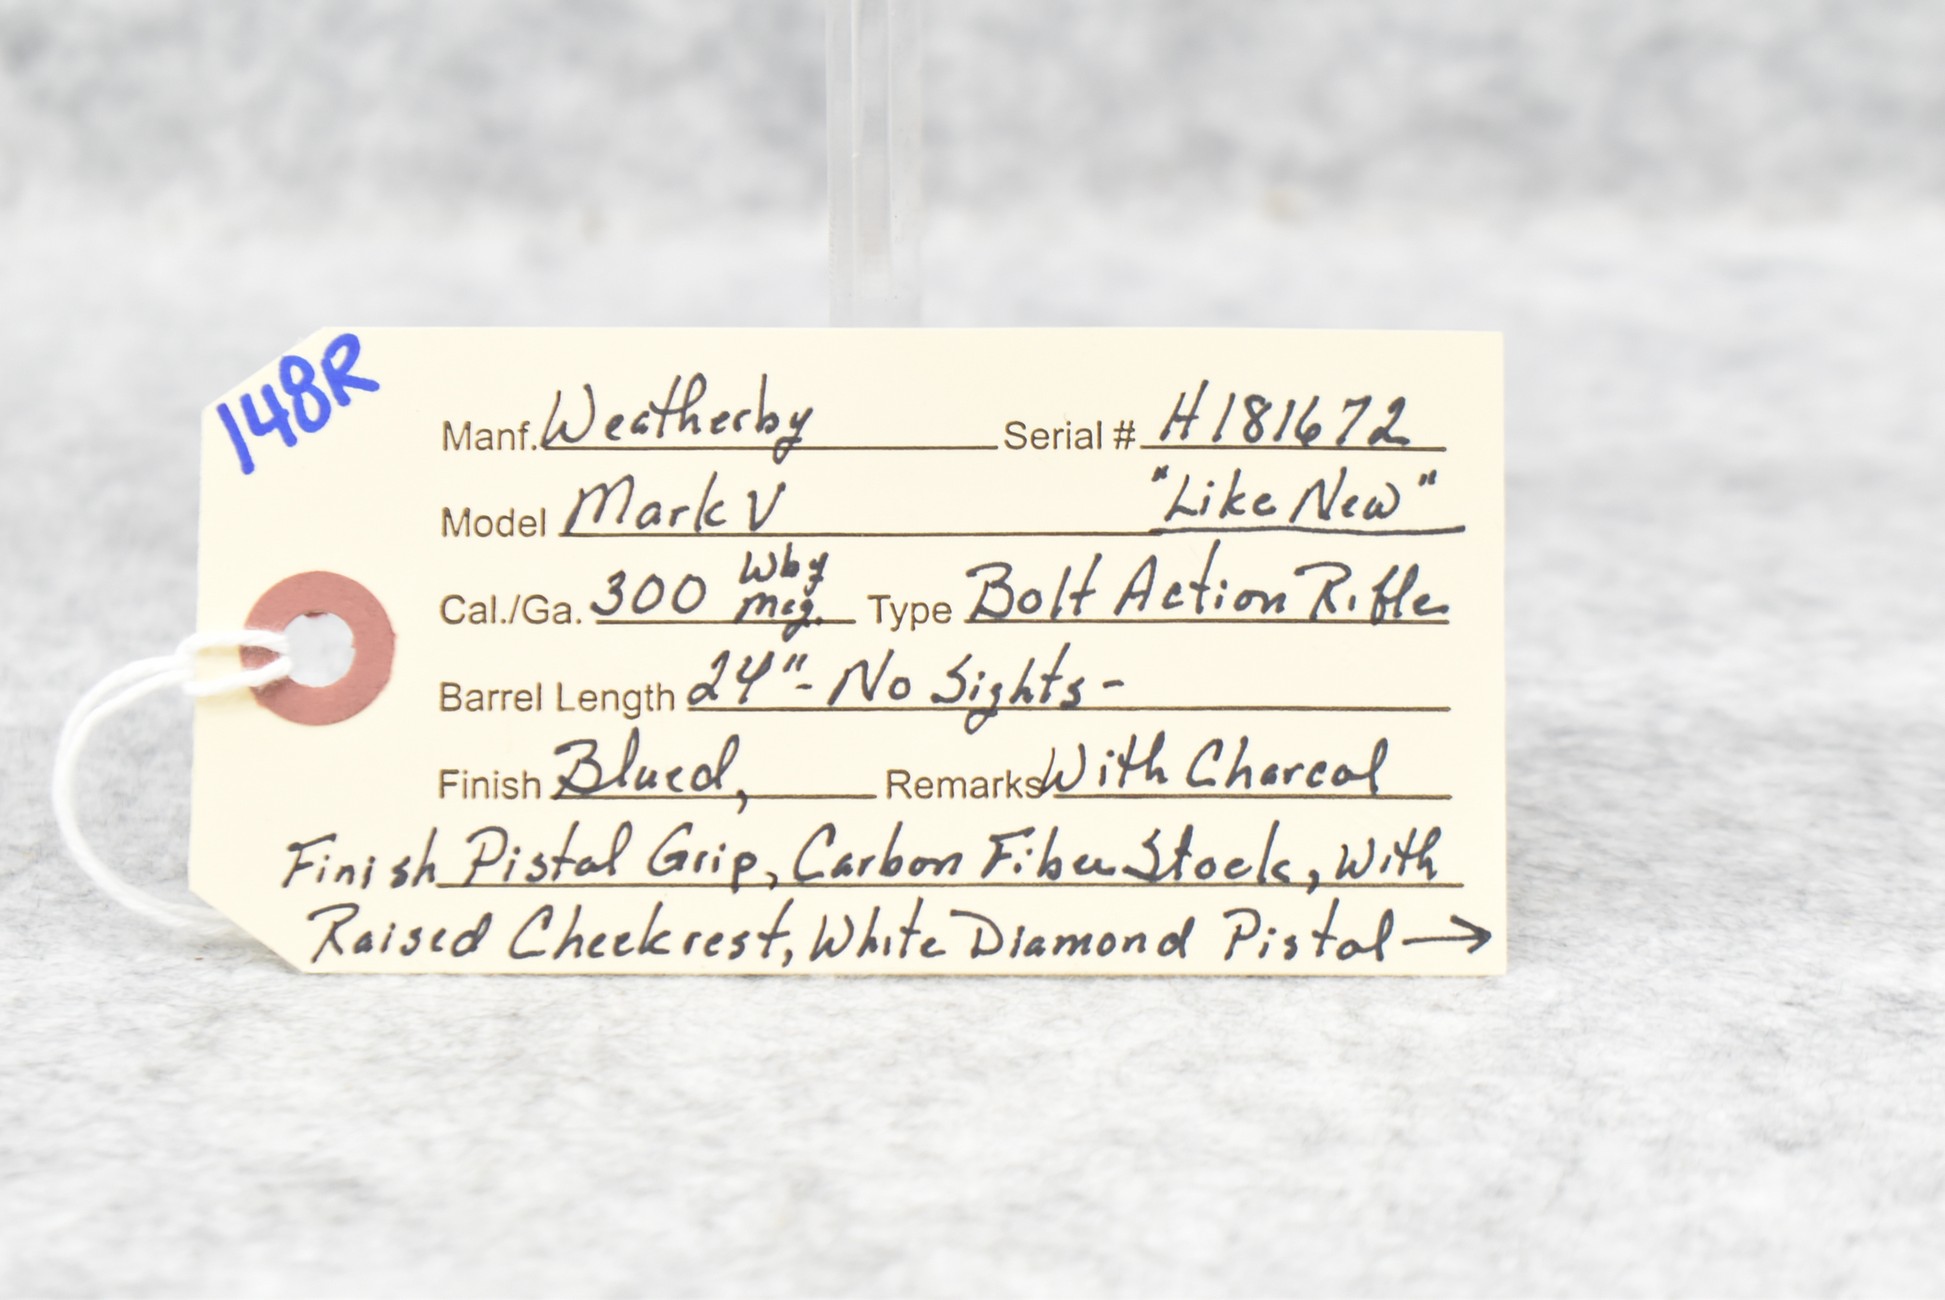 148R
Manf. Weatherby Serial # H181672
Model Mark V "Like New"
Cal./Ga. 300 Wby Mag. Type Bolt Action Rifle
Barrel Length 24"- No Sights-
Finish Blued, Remarks With Charcol
Finish Pistal Grip, Carbon Fiber Stock, With
Raised Cheekrest, White Diamond Pistal →